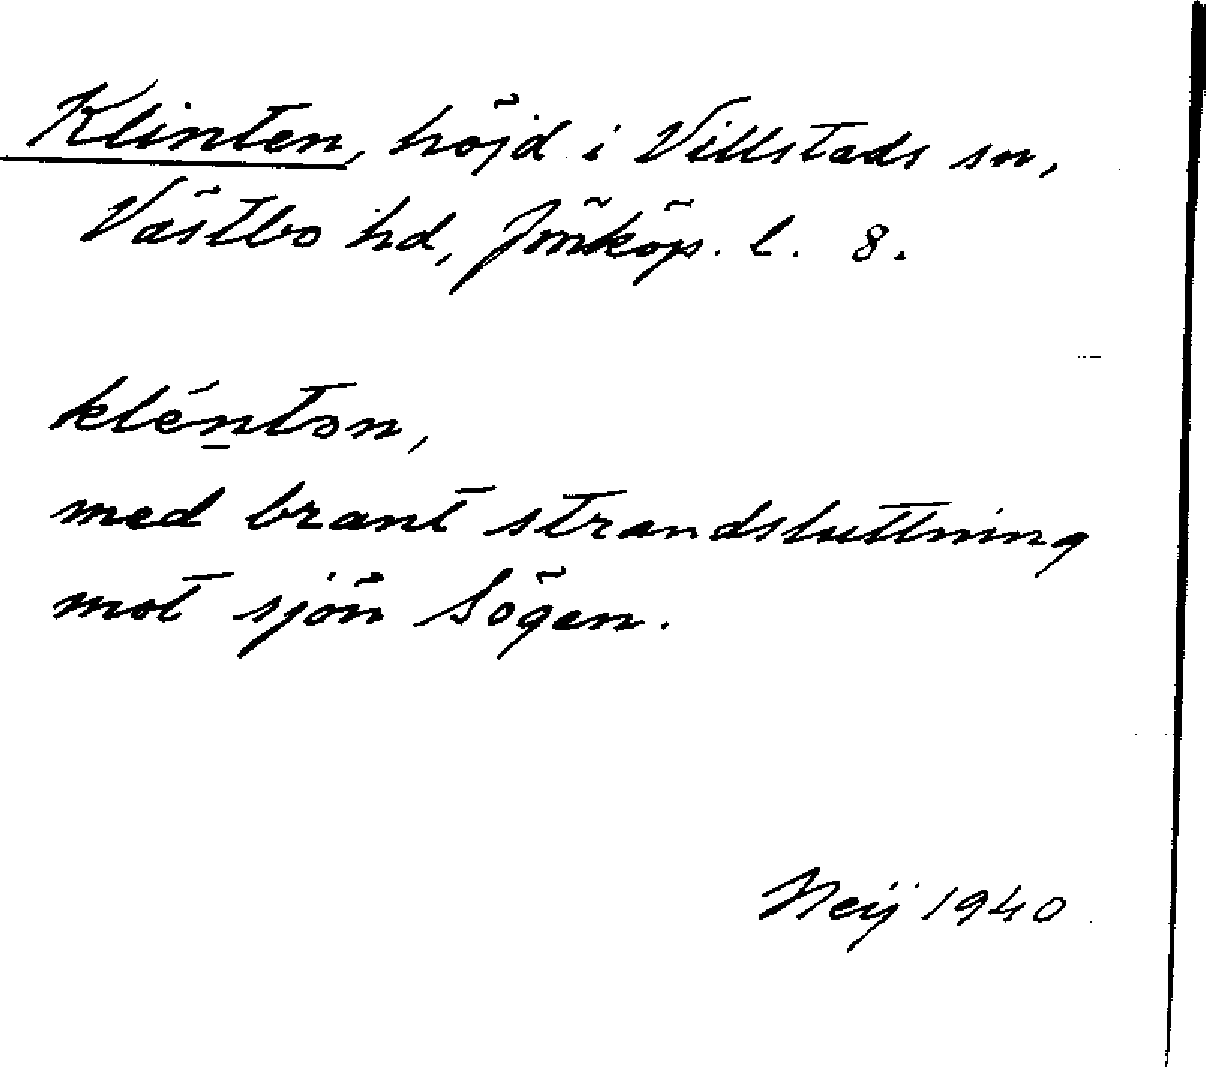 Klinten, höjd i Villstads sn,
Västbo hd, Jönköp. l. 8.
klén̲tən,
med brant strandsluttning
mot sjön Sögen.
Neij 1940